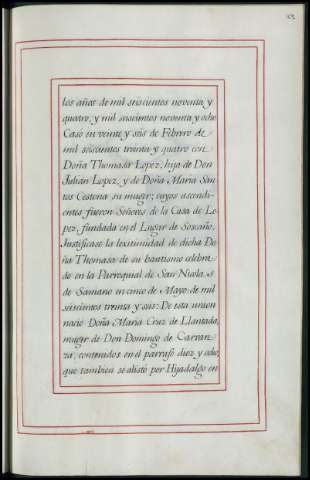 los años de mil seiscientos noventa y
quatro, y mil seiscientos noventa y ocho
Caso en veinte y seis de Febrero de
mil seiscientos treinta y quatro con
Doña Thomasa Lopez, hija de Don
Julian Lopez, y de Doña Maria San
tos Cestona su muger; cuyos ascendi
entes fueron Señores de la Casa de Lo
pez, fundada en el Lugar de
Justificase la lexitimidad de dicha Do
ña Thomasa de su bautismo celebra
do en la Parroquial de San Nicolas
de Samano en cinco de Mayo de mil
seiscientos treinta y seis: De esta union
nacio Doña Maria Cruz de Llantada,
muger de Don Domingo de Carran
za, contenidos en el parrafo diez y ocho,
que tambien se alisto por Hijadalgo en